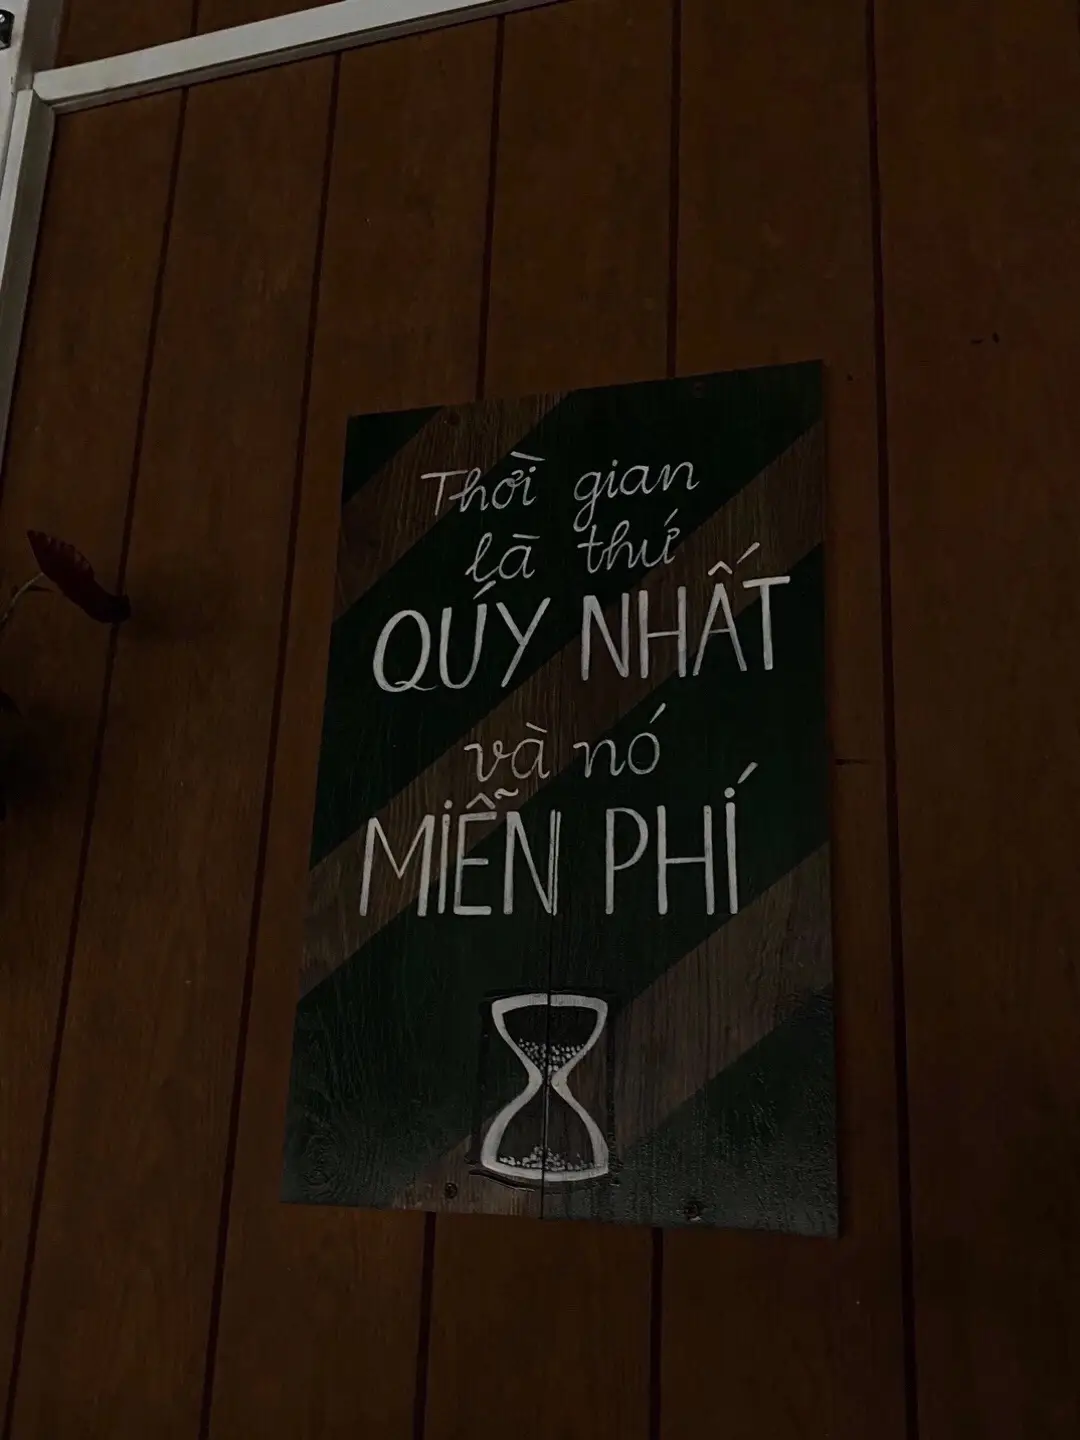 Thời gian
là thứ
QUÝ NHẤT
và nó
MIỄN PHÍ